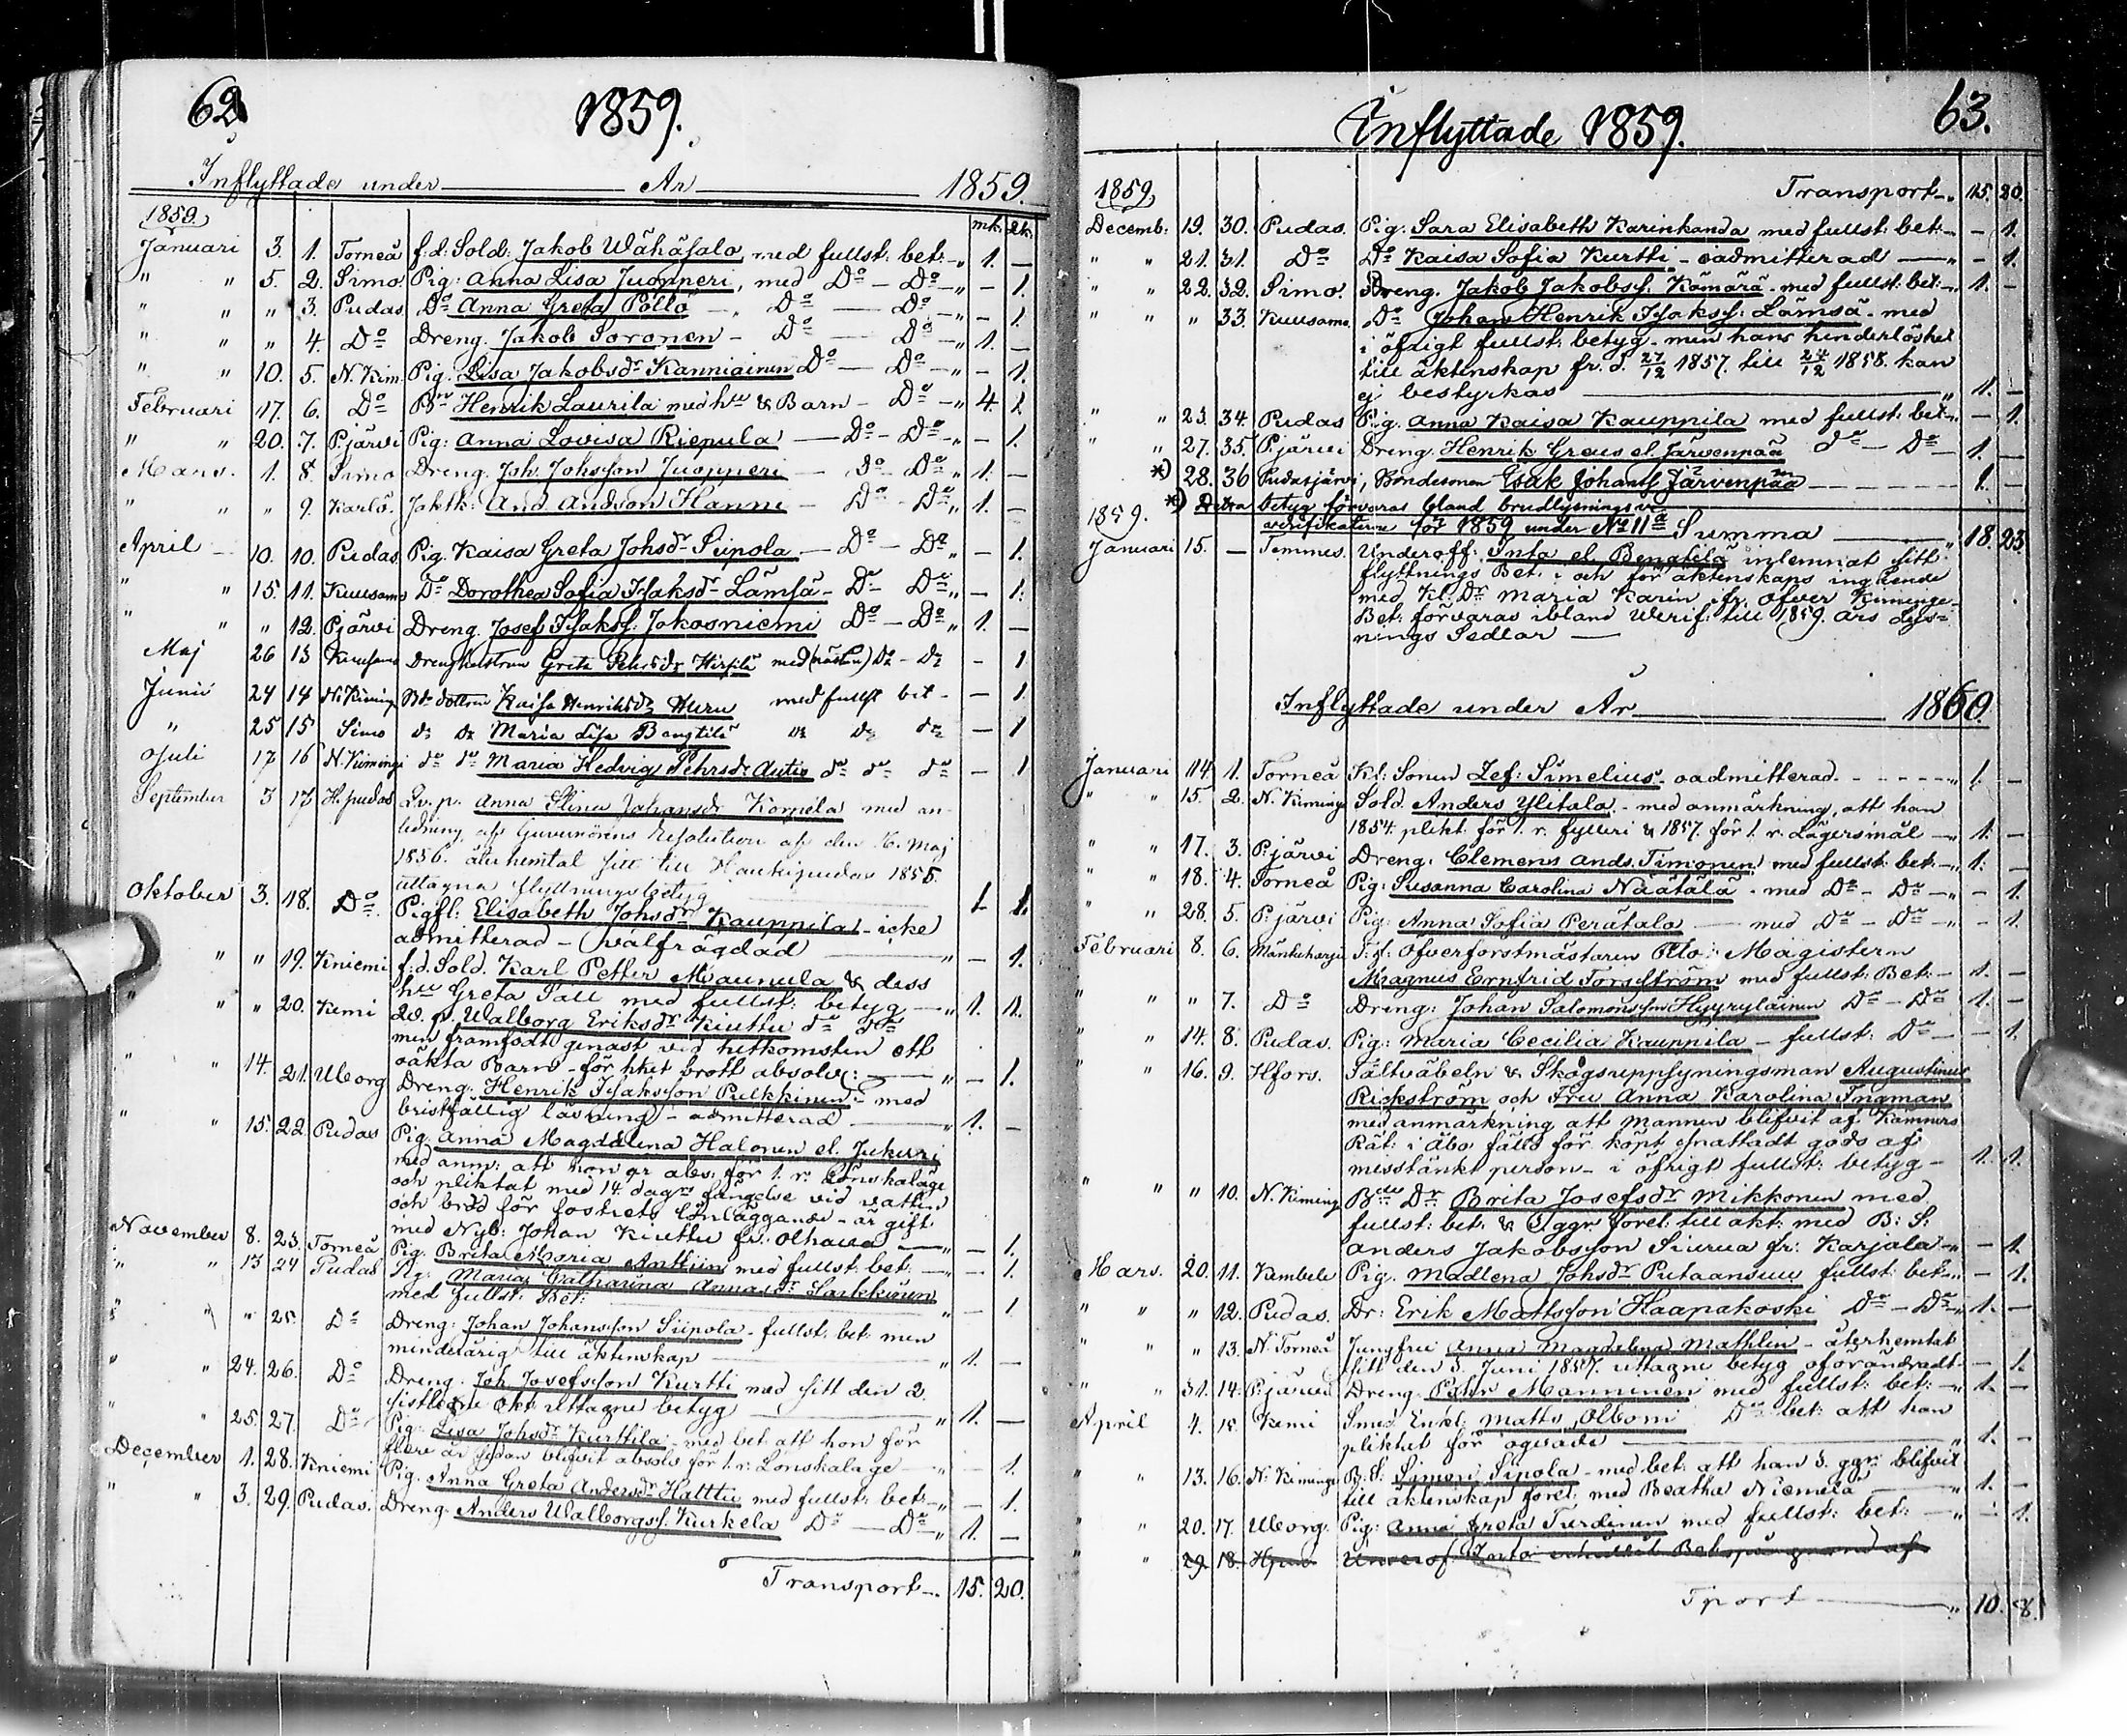 62
1859.
Inflyttade under År 1859.
1859. mk. qk.
Januari 3. 1. Torneå f.d. Sold: Jakob Wähäsalo, med fullst: bet: -„ 1. —
„ „ 5. 2. Simo. Pig: Anna Lisa Juopperi, med Do - Do -„ - 1.
„ „ „ 3. Pudas. Do Anna Greta Pöllö -„ Do — Do -„ - 1.
„ „ „ 4. Do Dreng. Jakob Soronen - Do — Do -„ 1. —
„ „ 10. 5. N. Kim. Pig. Lisa Jakobsdr Kanniainen Do — Do -„ - 1.
Februari 17. 6. Do Bn Henrik Laurila med hu & Barn - Do -„ 4. 1.
„ „ 20. 7. P.järvi Pig: Anna Lovisa Riepula — Do - Do -„ - 1.
Mars. 1. 8. Simo Dreng. Joh. Johsson Juopperi - do - Do „ 1. —
„ „ „ 9. Karlö. Jaktk: And. Andson Hanni - Do - Do „ 1. —
April - 10. 10. Pudas Pig. Kaisa Greta Johsdr Siipola - Do - Do „ - 1.
„ „ 15. 11. Kuusamo Do Dorothea Sofia Isaksdr Lämsä - Do Do „ - 1.
„ „ „ 12. Pjärvi Dreng. Josef Isakss. Jokosniemi Do - Do „ 1. —
Maj 26 13 Kuusamo Drenghustrun Greta Pehrsdr Hirsilä med (nästan) Do - Do - 1
Junii 24 14 N. Kiming Bde dottren Kaisa Henriksdr Huru med fullst bet - - 1.
„ 25 15 Simo do do Maria Lisa Bengtilä do do do - 1
Juli 17 16 N. Kimingi do do Maria Hedvig Pehrsdr Autio do do do - 1
September 3 17 H. pudas Qv. p. Anna Stina Johansdr Korpela med an-
ledning af Guvernörens Resolution af den 16. Maj
1856. återhemtat sitt till Haukipudas 1855.
uttagna flyttningsbetyg — 1.
Oktober 3. 18. Do Pigfl: Elisabeth Johsdr Kauppila - icke
admitterad - (välfrägdad — „ - 1.
„ „ 19. Kniemi f.d. Sold. Karl Petter Maunula & dess
hu Greta Sall med fullst: betyg -„ 1. 1.
„ „ „ 20. Kemi Qv. p. Walborg Eriksdr Kiuttu do do
men framfödt genast vid hitkomsten ett
oäkta Barn - för hket brott absolv: — „ - 1.
„ „ 14. 21. Uleorg Dreng. Henrik Isaksson Pulkkinen - med
bristfällig läsning - admitterad — „ 1. —
„ „ 15. 22. Pudas Pig. Anna Magdalena Halonen el. Jukuri
med anm: att hon är abs: för 1. r. Lönskaläge
och pliktat med 14. dagrs fängelse vid vatten
och bröd för fostrets Lönläggande - är gift
med Nyb: Johan Kiuttu fr: Olhava — „ - 1.
November 8. 23. Torneå Pig. Brita Maria Anttiin med fullst: bet: - - 1.
„ „ 13 24 Pudas Pig: Maria Catharina Annasdr Sarkkinen
med fullst: Bet: — „ - 1
„ „ „ 25. Do Dreng: Johan Johansson Siipola - fullst: bet: men
minderårig till äktenskap — „ 1. —
„ „ 24. 26. Do Dreng. Joh. Josefsson Kurtti med sitt den 2.
sistledne Okt. uttagne betyg — „ 1. —
„ „ 25. 27. Do Pig: Lisa Johsdr Kurttila - med bet: att hon för
flere år sedan blifvit absolv för 1. r: Lönskalage — „ - 1.
December 1. 28. Kniemi Pig. Anna Greta Andersdr Halttu med fullst: bet: -„ - 1.
„ „ 3. 29. Pudas. Dreng. Anders Walborgss. Kurkela Do — Do „ 1. —
Transport -. 15. 20.
Inflyttade 1859. 63.
1859. Transport -. 15. 20.
Decemb: 19. 30. Pudas. Pig: Sara Elisabeth Karinkanda med fullst: bet: - - 1.
„ „ 21. 31. Do Do Kaisa Sofia Kurtti - oadmitterad — „ - 1.
„ „ 22. 32. Simo. Dreng. Jakob Jakobss. Kämärä - med fullst: bet: -„ 1. -
„ „ „ 33. Kuusamo. Do Johan Henrik Isakss: Lämsä - med
i öfrigt fullst: betyg - men hans hinderlöshet
till äktenskap fr. d. 27/12 1857. till 24/12 1858. kan
ej bestyrkas — „ 1. —
„ „ 23. 34. Pudas Pig. Anna Kaisa Kauppila med fullst: bet -„ - 1.
„ „ 27. 35. P.järvi Dreng. Henrik Greus el. Järvenpää do - Do - 1. —
*) 28. 36 Pudasjärvi, Bondesonen Isak Johanss Järvenpää - - - - - 1. —
*) Dettas betyg förvaras bland brudlysnings
verifikaterna för 1859 under No 11a Summa — „ 18. 23.
1859.
Januari 15. - Temmes. Underoff: Snfa el. Bengtilä inlemnat sitt
flyttnings Bet: i och för äktenskaps ingående
med Kl. Dr. Maria Karin fr. Öfver Kiminge -
Bet: förvaras ibland Werif: till 1859. års lys-
nings Sedlar —
Inflyttade under År 1860.
Januari 14. 1. Torneå Kl: Sonen Zef: Simelius - oadmitterad. - - - - - „ 1. —
„ „ 15. 2. N. Kiming Sold. Anders Ylitalo - med anmärkning, att han
1854. plikt. för 1. r. fylleri & 1857. för 1. r. Lägersmål -„ 1. —
„ „ 17. 3. P.järvi Dreng. Clemens Ands. Timonen med fullst: bet: -„ 1. —
„ „ 18. 4. Torneå Pig: Susanna Carolina Näätälä - med Do - Do -„ - 1.
„ „ 28. 5. P.järvi Pig: Anna Sofia Perätalo — med Do - Do -„ - 1.
Februari 8. 6. Mänkiharju T. f. Öfverforstmästaren Magistern
Magnus Ernfrid Forsström med fullst: Bet: - 1. —
„ „ „ 7. Do Dreng: Johan Salomonsson Hyyryläinen Do - Do 1. —
„ „ 14. 8. Pudas. Pig: Maria Cecilia Kauppila - fullst: Do - - 1.
„ „ 16. 9. Hfors. Fältväbeln & Skogsuppsyningsman Augustinus
Rickström och Fru Anna Karolina Ingman
med anmärkning att Mannen blifvit af Kämners
Rät: i Åbo fälld för köpt snattadt gods af
misstänkt person - i öfrigt fullst: betyg - 1. 1.
„ „ „ 10. N. Kiming Bde Dr Brita Josefsdr Mikkonen med
fullst: bet: & ggr. förel: till äkt: med B: S:
Anders Jakobsson Siurua fr: Karjala -„ - 1
Mars. 20. 11. Kembele Pig. Madlena Johsdr Putaansuu fullst: bet: -„ - 1.
„ „ „ 12. Pudas. Dr: Erik Mattsson Haapakoski Do - Do „ 1. —
„ „ „ 13. N. Torneå Jungfru Anna Magdalena Mathlin - återhemtat
sitt den 3. Juni 1857. uttagne betyg oförändradt - - 1.
„ „ 31. 14. P.järvi Dreng. Pehr Manninen med fullst: bet: -„ 1. —
April 4. 15. Kemi Smed Enkl: Matts Olbom Do bet: att han
pliktat för ogerade — „ 1. —
„ „ 13. 16. N. Kiminge B: S: Simon Sipola - med bet: att han 3. ggr. blifvit
till äktenskap förel: med Beatha Niemelä — „ 1. —
„ „ 20. 17. Uleorg. Pig: Anna Greta Turdinen med fullst: bet: -„ - 1.
„ „ 29. 18. Underof: Bet på grund af
Tport — „ 10. 8.